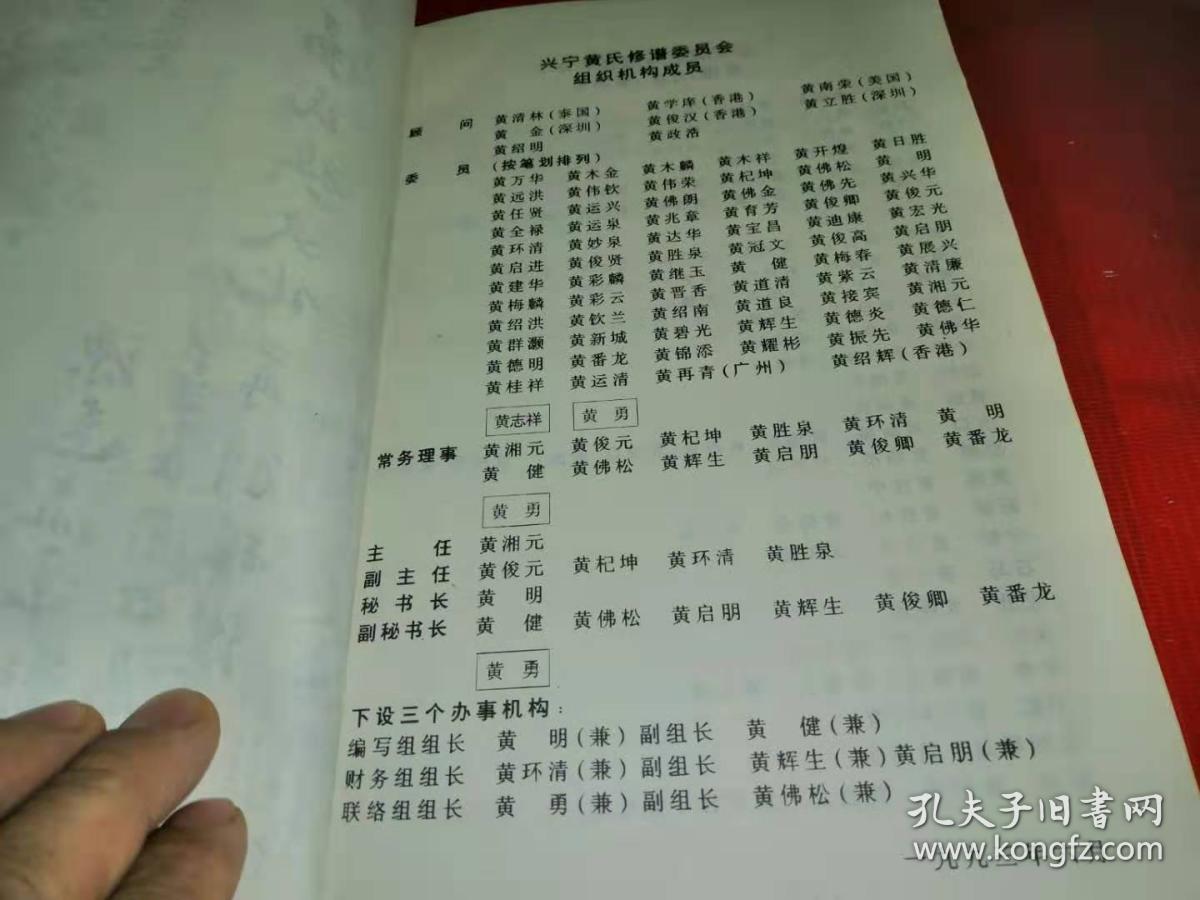 兴宁黄氏修谱委员会
组织机构成员
顾　问　黄清林(泰国)　黄学庠(香港)　黄南荣(美国)
黄　金(深圳)　黄俊汉(香港)　黄立胜(深圳)
黄绍明　黄政浩
委　员　(按笔划排列)
黄万华　黄木金　黄木麟　黄木祥　黄开煌　黄日胜
黄远洪　黄伟钦　黄伟荣　黄杞坤　黄佛松　黄　明
黄任贤　黄运兴　黄佛朗　黄佛金　黄佛先　黄兴华
黄全禄　黄运泉　黄兆章　黄育芳　黄俊卿　黄俊元
黄环清　黄妙泉　黄达华　黄宝昌　黄迪康　黄宏光
黄启进　黄俊贤　黄胜泉　黄冠文　黄俊高　黄启朋
黄建华　黄彩麟　黄继玉　黄　健　黄梅春　黄展兴
黄梅麟　黄彩云　黄晋香　黄道清　黄紫云　黄清廉
黄绍洪　黄钦兰　黄绍南　黄道良　黄接宾　黄湘元
黄群灏　黄新城　黄碧光　黄辉生　黄德炎　黄德仁
黄德明　黄番龙　黄锦添　黄耀彬　黄振先　黄佛华
黄桂祥　黄运清　黄再青(广州)　黄绍辉(香港)
黄志祥　黄　勇
常务理事　黄湘元　黄俊元　黄杞坤　黄胜泉　黄环清　黄　明
黄　健　黄佛松　黄辉生　黄启朋　黄俊卿　黄番龙
黄　勇
主　任　黄湘元
副主任　黄俊元　黄杞坤　黄环清　黄胜泉
秘书长　黄　明
副秘书长　黄　健　黄佛松　黄启朋　黄辉生　黄俊卿　黄番龙
黄　勇
下设三个办事机构：
编写组组长　黄　明(兼)副组长　黄　健(兼)
财务组组长　黄环清(兼)副组长　黄辉生(兼)黄启朋(兼)
联络组组长　黄　勇(兼)副组长　黄佛松(兼)
孔夫子旧书网
www.kongfz.com